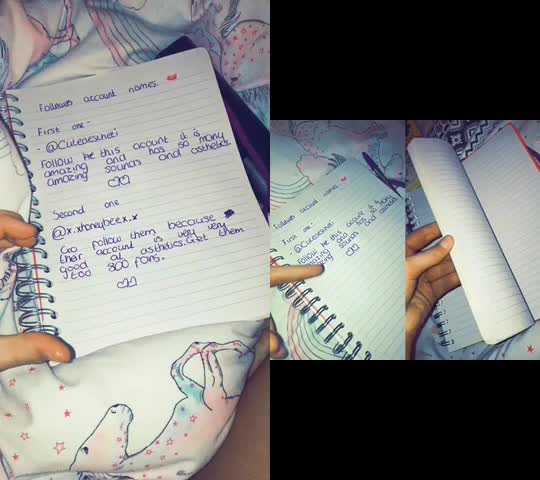 Followers account names.
First one -
- @Cuteaestheti
Follow me this acount it is
amazing and has so many
amazing sounds and asthetics.
Second one
@x.xhoneybeex.x
Go follow them because
their account is very very
good at asthetics. Get them
to 800 fans.
Followers account names.
First one -
- @Cuteaestheti
Follow me this acount it is
amazing and has so many
amazing sounds and